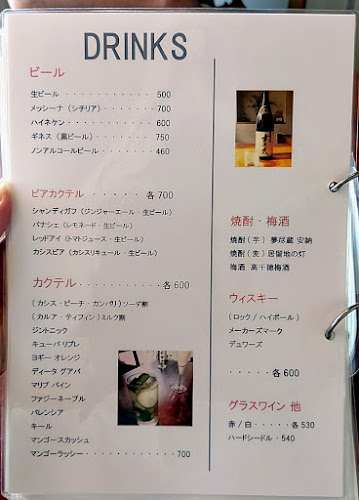 DRINKS
ビール
生ビール ・・・・・・・・・・・・ 500
メッシーナ（シチリア）・・・・・・・700
ハイネケン・・・・・・・・・・・・ 600
ギネス（黒ビール）・・・・・・・ 750
ノンアルコールビール・・・・・・・・460
ビアカクテル ・・・・・ 各 700
シャンディガフ（ジンジャーエール・生ビール）
パナシェ（レモネード・生ビール）
レッドアイ（トマトジュース・生ビール）
カシスビア（カシスリキュール・生ビール）
カクテル ・・・・・・・・・・各 600
（カシス・ピーチ・カンパリ）ソーダ割
（カルア・ティフィン）ミルク割
ジントニック
キューバリブレ
ヨギー オレンジ
ディータ グアバ
マリブ パイン
ファジーネーブル
バレンシア
キール
マンゴースカッシュ
マンゴーラッシー・・・・・・・・・・・700
焼酎・梅酒
焼酎（芋） 夢尽蔵 安納
焼酎（麦）居留地の灯
梅酒 高千穂梅酒
ウィスキー
（ロック / ハイボール）
メーカーズマーク
デュワーズ
・・・・・各 600
グラスワイン 他
赤 / 白・・・・・各 530
ハードシードル・540